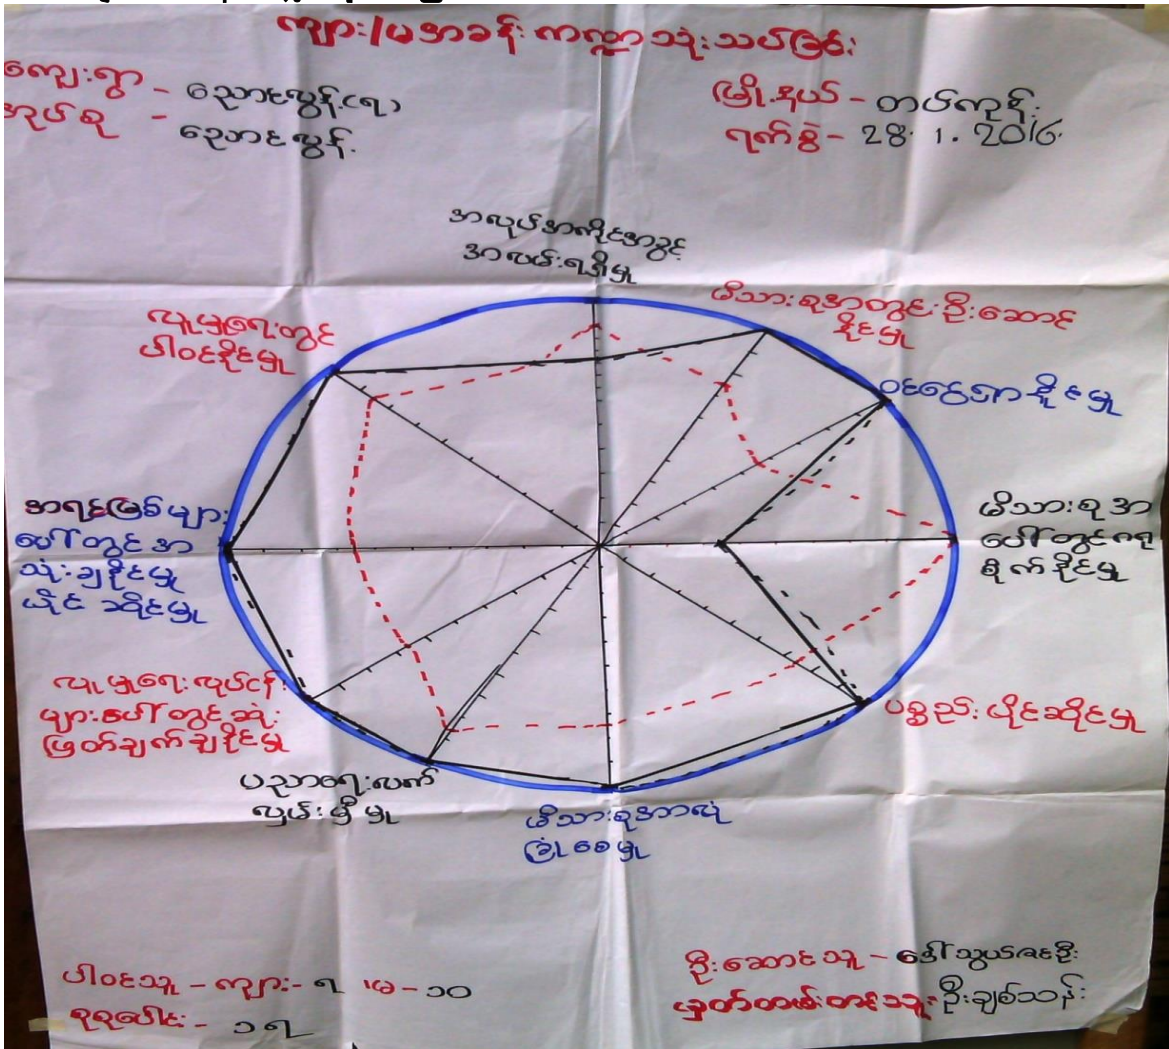 ကျား/မအခန်းကဏ္ဍသုံးသပ်ခြင်း
ကျေးရွာ - ညောင်လွန့်(ရ)
အုပ်စု - ညောင်လွန့်
မြို့နယ် - တပ်ကုန်း
ရက်စွဲ - 28. 1. 2016
အလုပ်အကိုင်အခွင့်
အလမ်းရရှိမှု
မိသားစုအတွင်းဦးဆောင်
နိုင်မှု
ဝင်ငွေရှာနိုင်မှု
မိသားစုအ
ပေါ်တွင်ဂရု
စိုက်နိုင်မှု
ပစ္စည်းပိုင်ဆိုင်မှု
မိသားစုအာလုံ
ခြုံစေမှု
ပညာရေးလက်
လှမ်းမှီမှု
လူမှုရေးလုပ်ငန်း
များပေါ်တွင်ဆုံး
ဖြတ်ချက်ချနိုင်မှု
အရင်းမြစ်များ
ပေါ်တွင်အ
သုံးချနိုင်မှု
ပိုင်ဆိုင်မှု
လူမှုရေးတွင်
ပါဝင်နိုင်မှု
ပါဝင်သူ - ကျား - ၇ မ - ၁၀
စုစုပေါင်း - ၁၇
ဦးဆောင်သူ - ဒေါ်သွယ်ဇင်ဦး
မှတ်တမ်းတင်သူ - ဦးချစ်သန်း